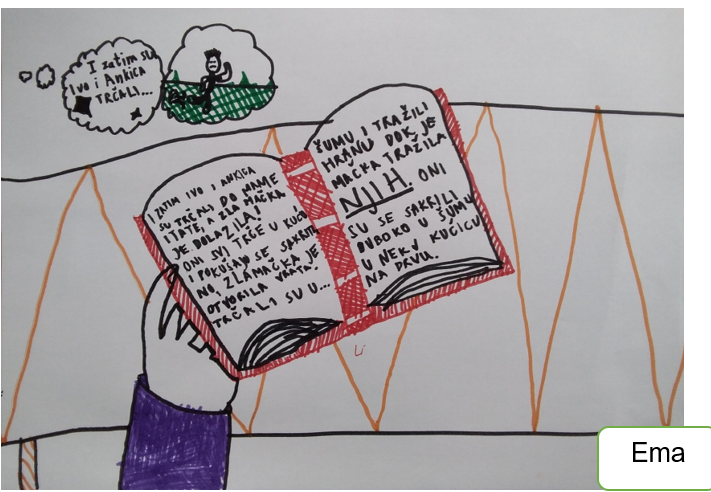 I zatim su
Ivo i Ankica
TRČALI...
I ZATIM IVO I ANKICA
SU TRČALI DO MAME
I TATE, A ZLA MAČKA
JE DOLAZILA!
ONI SVI TRČE U KUĆU
I POKUŠAJU SE SAKRITI
NO, ZLA MAČKA JE
OTVORILA VRATA.
TRČALI SU U...
ŠUMU I TRAŽILI
HRANU DOK JE
MAČKA TRAŽILA
NJIH ONI
SU SE SAKRILI
DUBOKO U ŠUMU
U NEKU KUĆICU
NA DRVU.
Ema